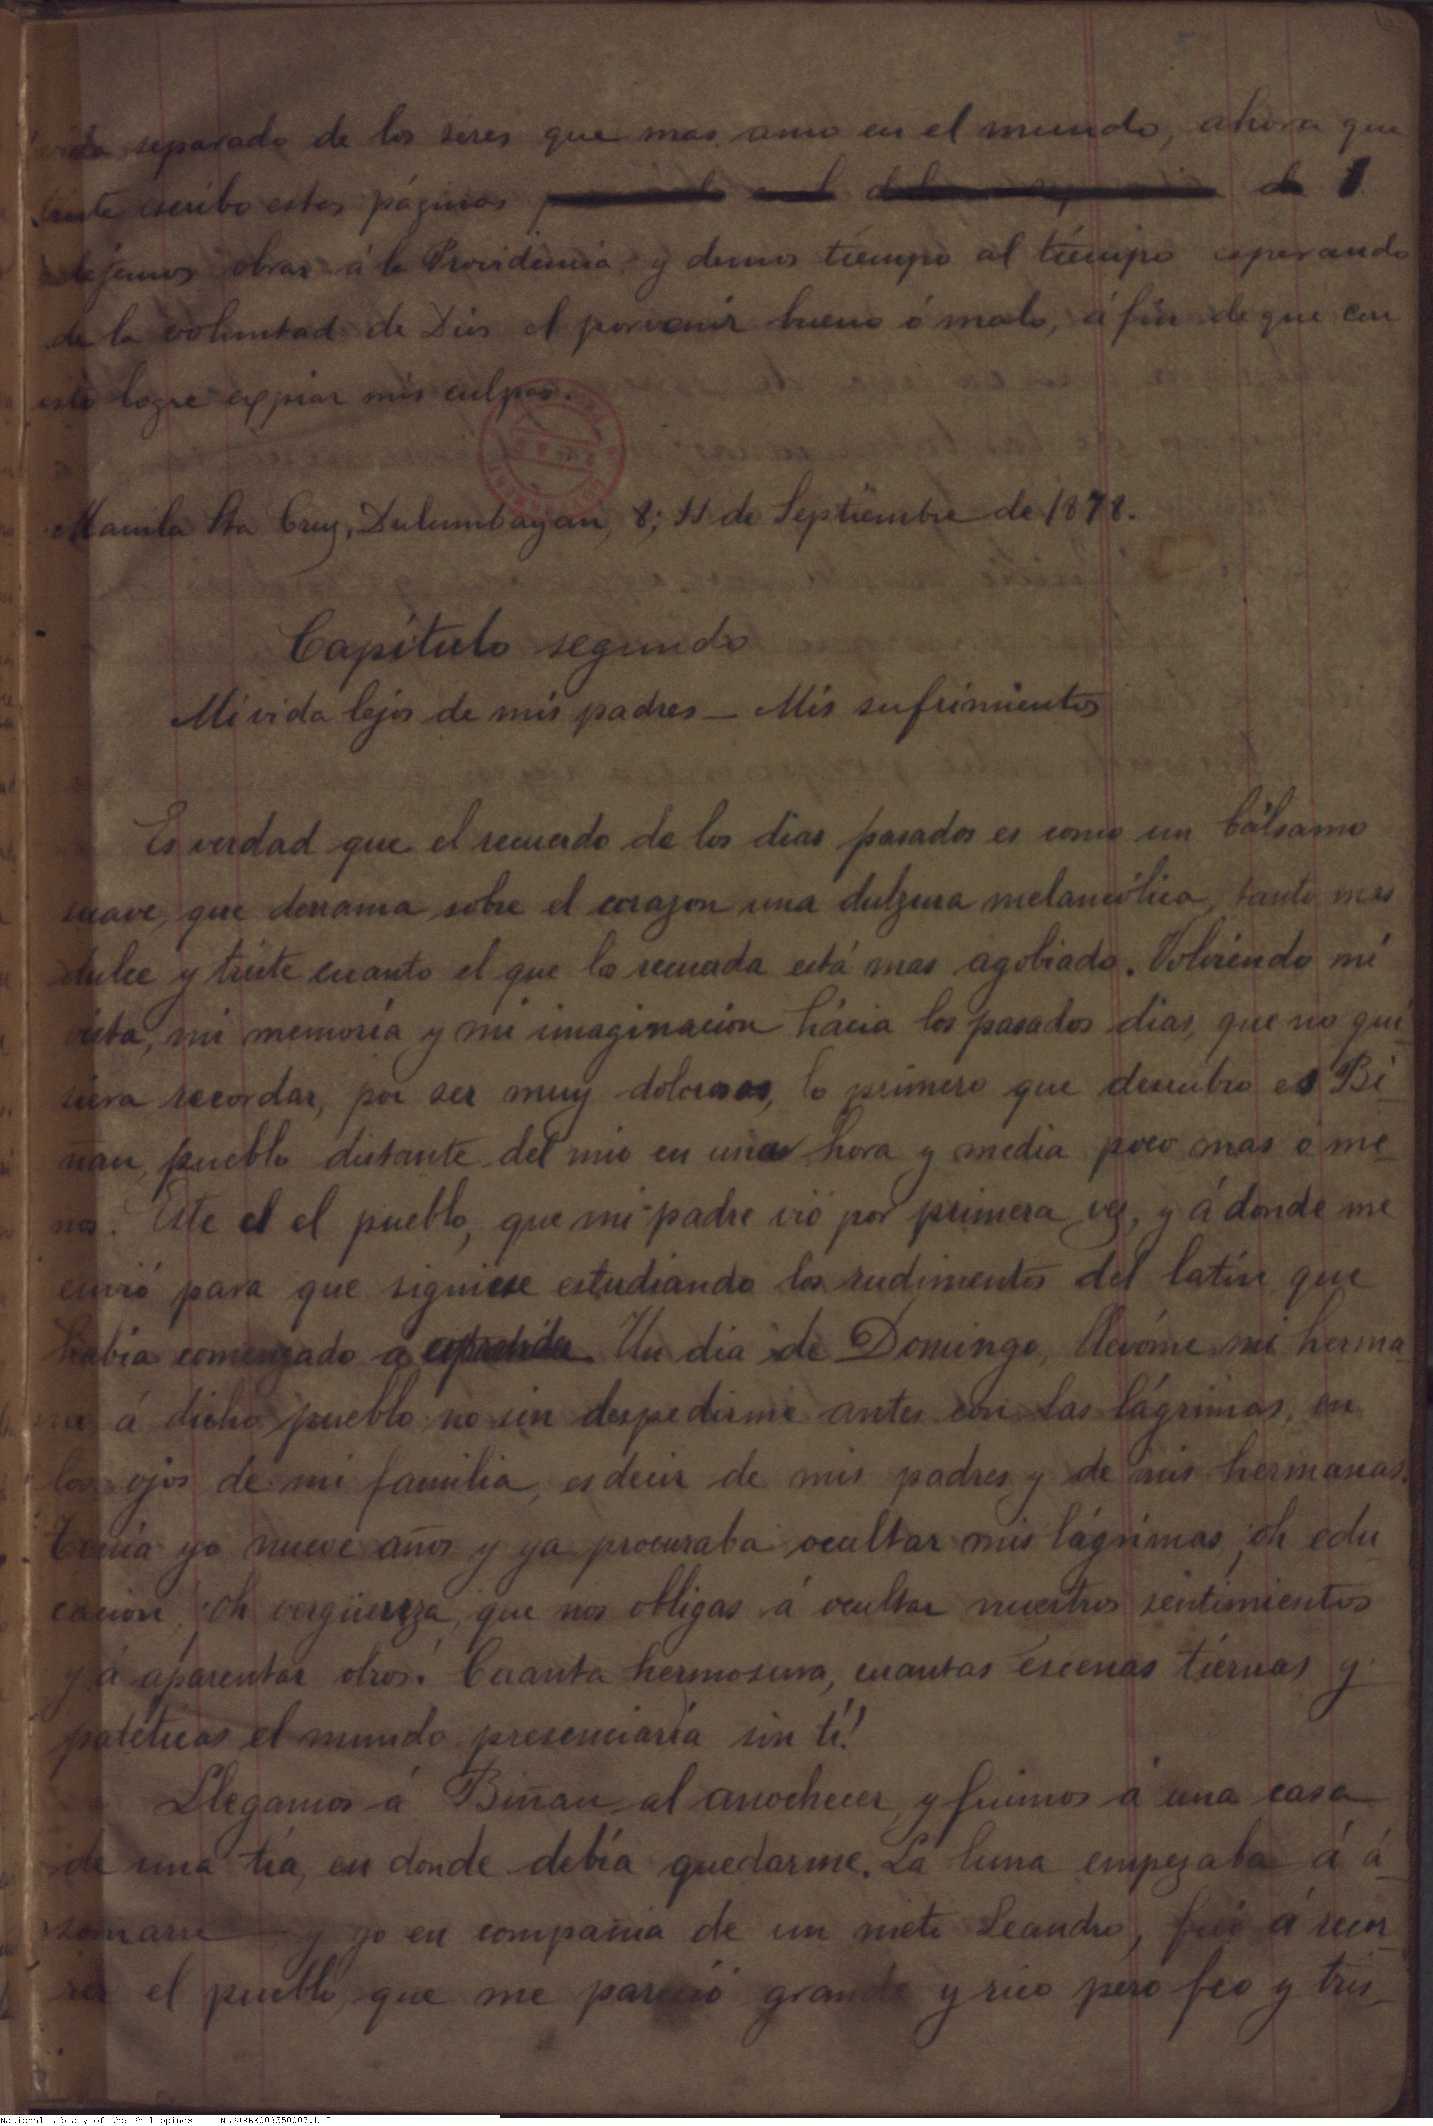 vida separado de los seres que mas amo en el mundo, ahora que
triste escribo estas páginas
dejemos obrar á la Providencia, y demos tiempo al tiempo esperando
de la voluntad de Dios el porvenir bueno ó malo, á fin de que con
esto logre expiar mis culpas.
Manila Sta Cruz, Dulumbayan, 8; 11 de Septiembre de 1878.
Capítulo segundo
Mi vida lejos de mis padres — Mis sufrimientos
Es verdad que el recuerdo de los dias pasados es como un bálsamo
suave, que derrama sobre el corazon una dulzura melancólica, tanto mas
dulce y triste cuanto el que lo recuerda está mas agobiado. Volviendo mi
vista, mi memoria y mi imaginacion hácia los pasados dias, que no qui
siera recordar, por ser muy dolorosos, lo primero que descubro es Bi_
ñan, pueblo distante del mio en una hora y media poco mas o me_
nos. Este es el pueblo, que mi padre vió por primera vez, y á donde me
envió para que siguiese estudiando los rudimentos del latin que
habia comenzado a Un dia de Domingo, llevóme mi herma_
no á dicho pueblo no sin despedirme antes con las lágrimas, en
los ojos de mi familia, es decir de mis padres y de mis hermanas.
Tenia yo nueve años y ya procuraba ocultar mis lágrimas ¡oh edu
cacion, oh vergüenza, que nos obligas á ocultar nuestros sentimientos
y á aparentar otros! Cuanta hermosura, cuantas escenas tiernas y
patéticas el mundo presenciaría sin tí!
Llegamos á Biñan al anochecer, y fuimos á una casa
de una tia, en donde debía quedarme. La luna empezaba á á_
somarse y yo en compañia de un nieto Leandro, fui á recor_
rer el pueblo, que me pareció grande y rico pero feo y tris_